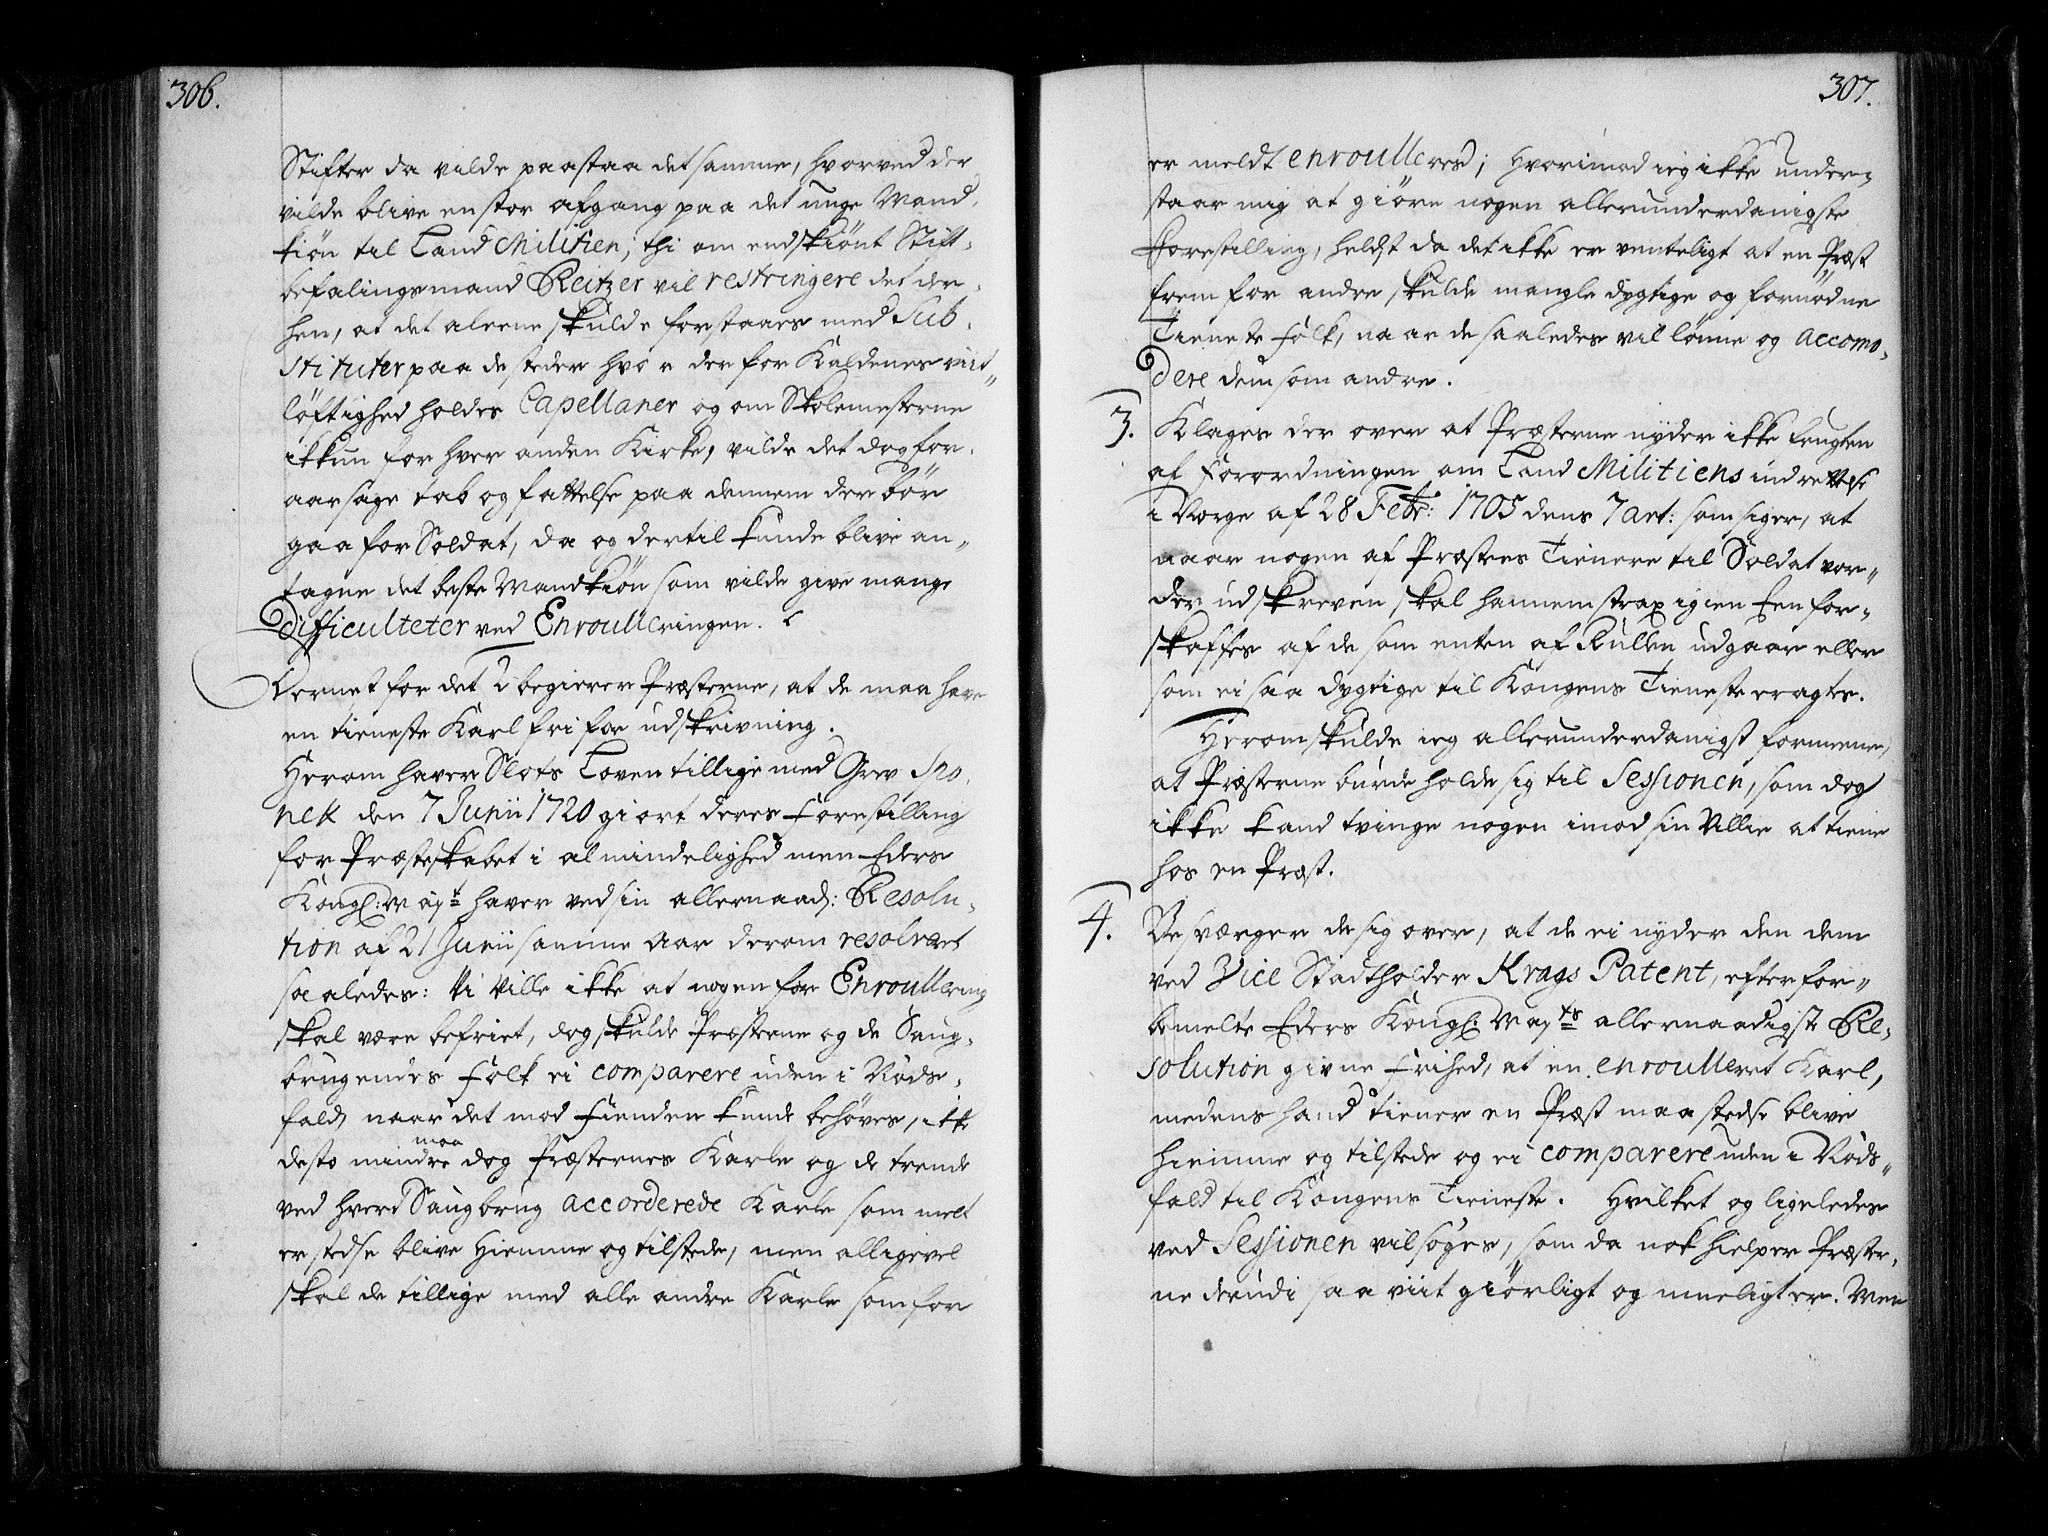 306.
Stifter da vilde paastaa det samme, hvorved der
vilde blive en stor afgang paa det unge Mand,
kiøn til Land Militien; thi om endskiønt Stift,
befalingsmand Reitzer vil restringere det der,
hen, at det aleene skulde forstaaes med Sub,
stituter paa de steder hvor der for Kaldenes viit„
løftighed holdes Capellaner og om Skolemesterne
ikkun for hver anden Kirke, vilde det dog for,
aarsage tab og fattelse paa dennem der bør
gaa for Soldat, da og dertil kunde blive an„
tagne det beste Mandkiøn som vilde give mange
difficulteter ved Enroulleringen.
Dernest for det 2 begierer Præsterne, at de maa have
en tieneste Karl fri for udskrivning.
Herom haver Slots Loven tillige med Grev Spo,
nek den 7 Junii 1720 giort deres Forestilling
for Præsteskabet i almindelighed men Eders
Kongl: Mayt haver ved sin allernaad: Resolu,
tion af 21 Junii samme Aar derom resolveret
saaledes: Vi Ville ikke at nogen for Enroullering
skal være befriet, dog skulde Præsterne og de Saug,
brugendes Folk ei comparere uden i Nøds,
fald, naar det mod Fienden kunde behøves, ikke
desto mindre maa dog Præsternes Karle og de trende
ved hverd Saugbrug accorderede Karle som melt
er stedse blive Hiemme og tilstede, men alligevel
skal de tillige med alle andre Karle som for
307.
er meldt enroulleres; Hvorimod ieg ikke under„
staar mig at giøre nogen allerunderdanigste
Forestilling, heldst da det ikke er venteligt at en Præst
frem for andre skulde mangle dygtige og fornødne
Tieneste Folk, naar de saaledes vil lønne og accomo,
dere dem som andre.
3. Klages der over at Præsterne nyder ikke Frugten
af Forordningen om Land Militiens indrettelse
i Norge af 28 Febr: 1705 dens 7 art: som siger, at
naar nogen af Præstens Tienere til Soldat vor„
der udskreven skal hannem strax igien Een for„
skaffes af de som enten af Rullen udgaar eller
som ei saa dygtige til Kongens Tieneste eragtes.
Herom skulde ieg allerunderdanigst formeene,
at Præsterne burde holde sig til Sessionen, som dog
ikke kand tvinge nogen imod sin Villie at tiene
hos en Præst.
4. Besværger de sig over, at de ei nyder den dem
ved Vice Stadtholder Krags Patent, efter for„
bemelte Eders Kongl: Mayts allernaadigste Re,
solution givne Frihed, at en enroulleret Karl,
medens hand tiener en Præst maa stedse blive
hiemme og tilstede og ei comparere uden i Nøds„
fald til Kongens Tieneste. Hvilket og ligeledes
ved Sessionen vil søges, som da nok hielper Præster,
ne derudi saa viit giørligt og mueligt er. Men